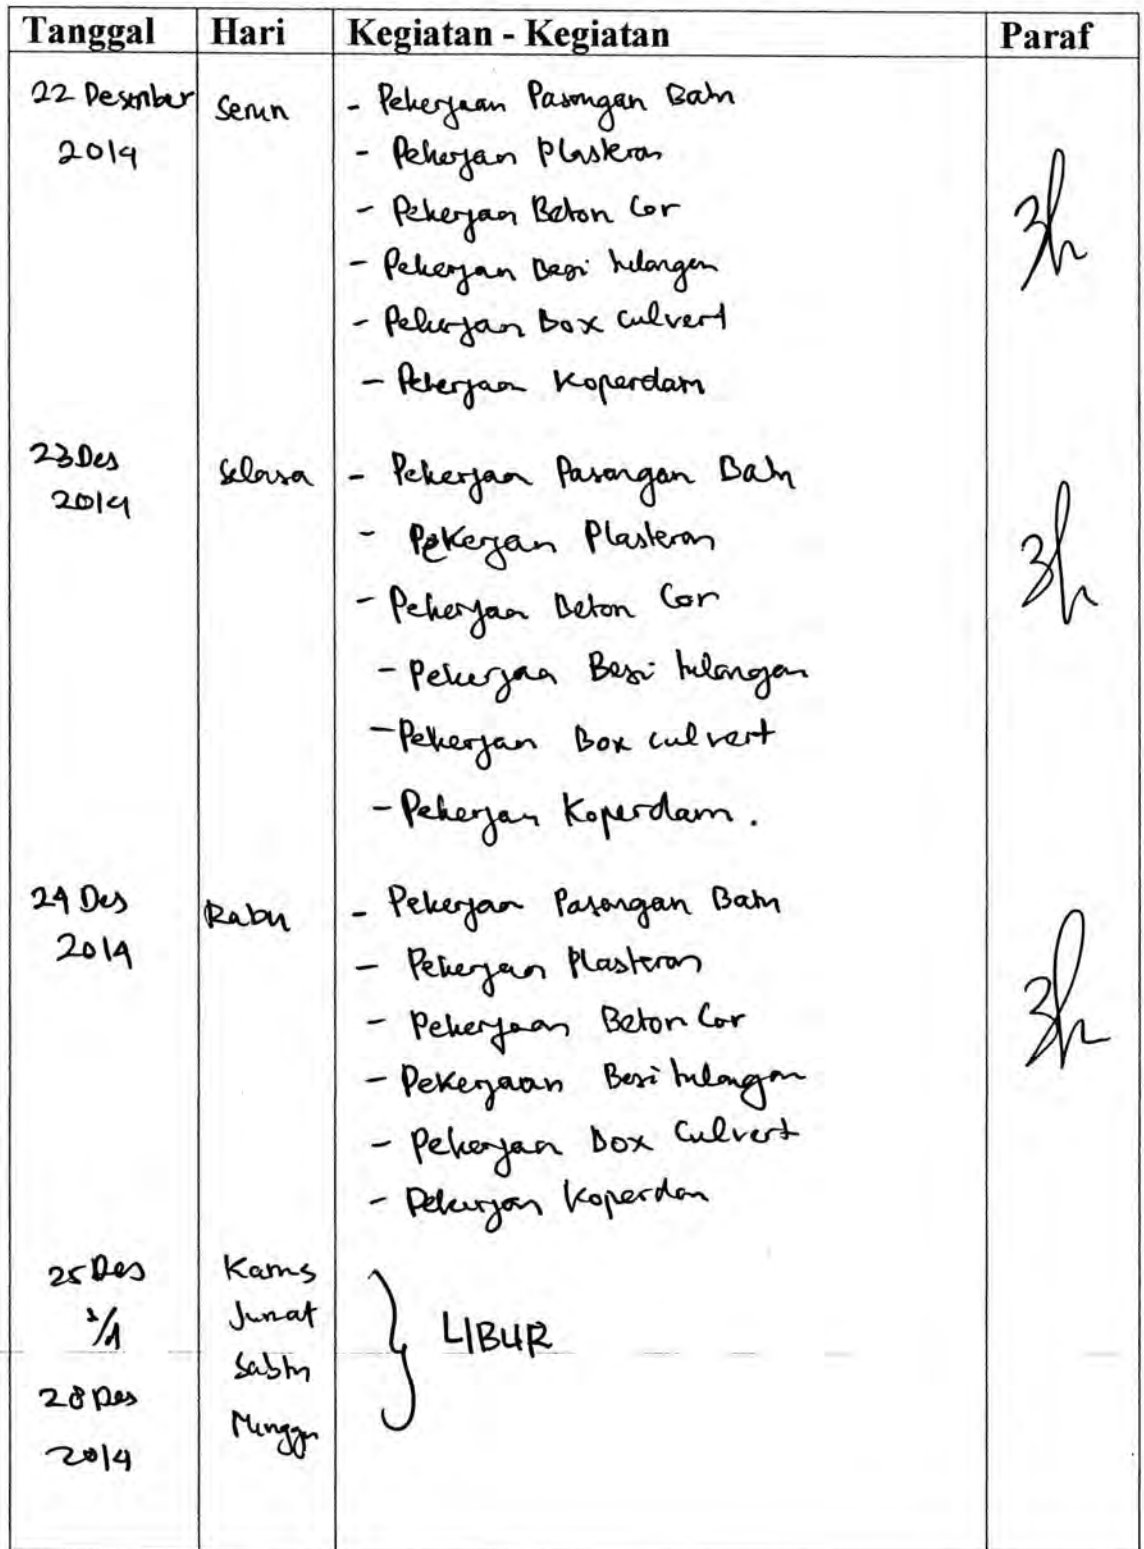 Tanggal Hari Kegiatan - Kegiatan Paraf
22 Desember Senin - Pekerjaan Pasangan Batu
2014 - Pekerjan Plasteran
- Pekerjaan Beton Cor
- Pekerjan Besi tulangan
- Pekerjan Box culvert
- Pekerjaan Koperdam
23 Des Selasa - Pekerjaan Pasangan Batu
2014
- Pekerjan Plasteran
- Pekerjaan Beton Cor
- Pekerjaa Besi tulangan
- Pekerjan Box culvert
- Pekerjan Koperdam.
24 Des Rabu - Pekerjaan Pasangan Batu
2014 - Pekerjaan Plasteran
- Pekerjaan Beton Cor
- Pekerjaan Besi tulangan
- Pekerjaan Box Culvert
- Pekerjan Koperdam
25 Des Kamis
s/d Jumat LIBUR
Sabtu
28 Des
Minggu
2014